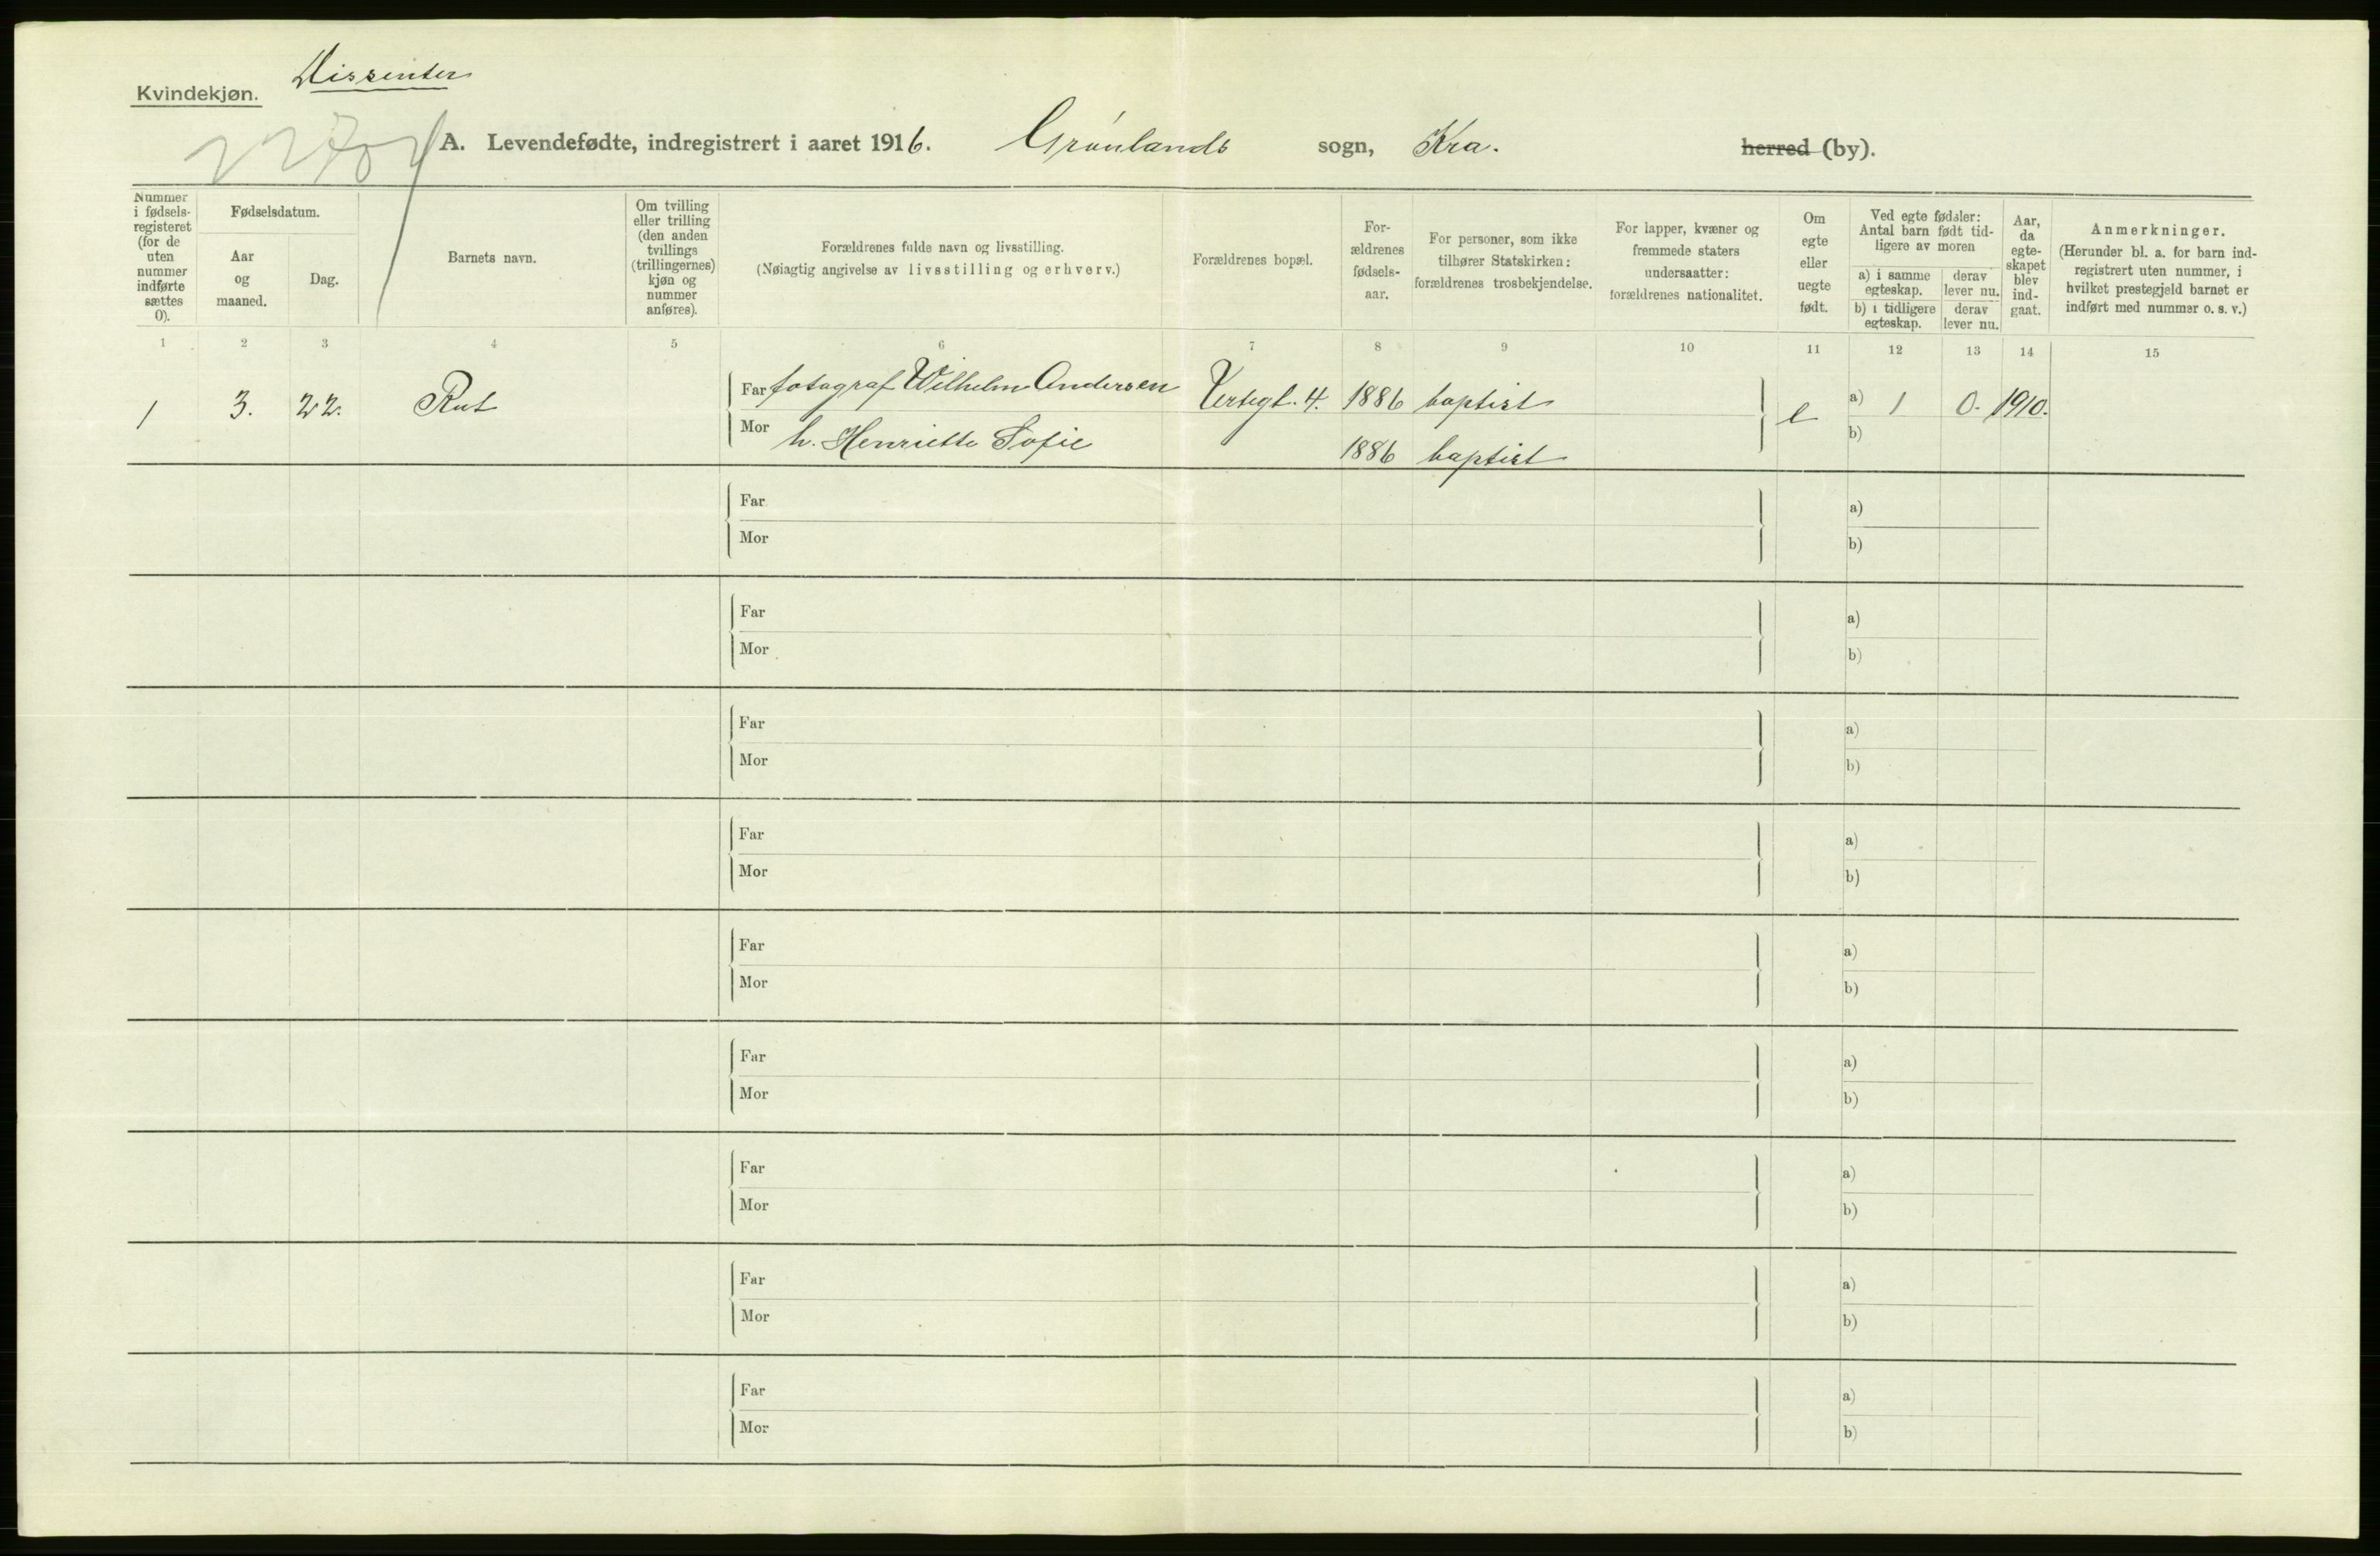 Dissenter
Kvindekjøn.
A. Levendefødte, indregistrert i aaret 1916. Grønlands sogn, Kra. herred (by).
Nummer i fødsels-registeret (for de uten nummer indførte sættes 0).
Fødselsdatum.
Aar og maaned.
Dag.
Barnets navn.
Om tvilling eller trilling (den anden tvillings (trillingernes) kjøn og nummer anføres).
Forældrenes fulde navn og livsstilling.
(Nøiagtig angivelse av livsstilling og erhverv.)
Forældrenes bopæl.
For-ældrenes fødsels-aar.
For personer, som ikke tilhører Statskirken: forældrenes trosbekjendelse.
For lapper, kvæner og fremmede staters undersaatter: forældrenes nationalitet.
Om egte eller uegte født.
Ved egte fødsler: Antal barn født tid-ligere av moren
a) i samme egteskap.
derav lever nu.
b) i tidligere egteskap.
derav lever nu.
Aar, da egte-skapet blev ind-gaat.
Anmerkninger.
(Herunder bl. a. for barn ind-registrert uten nummer, i hvilket prestegjeld barnet er indført med nummer o. s. v.)
1 2 3 4 5 6 7 8 9 10 11 12 13 14 15
1 3. 22. Rut Far fotograf Wilhelm Andersen 4. 1886 baptist e a) 1 0. 1910.
Mor h. Henriette Sofie 1886 baptist b)
Far a)
Mor b)
Far a)
Mor b)
Far a)
Mor b)
Far a)
Mor b)
Far a)
Mor b)
Far a)
Mor b)
Far a)
Mor b)
Far a)
Mor b)
Far a)
Mor b)